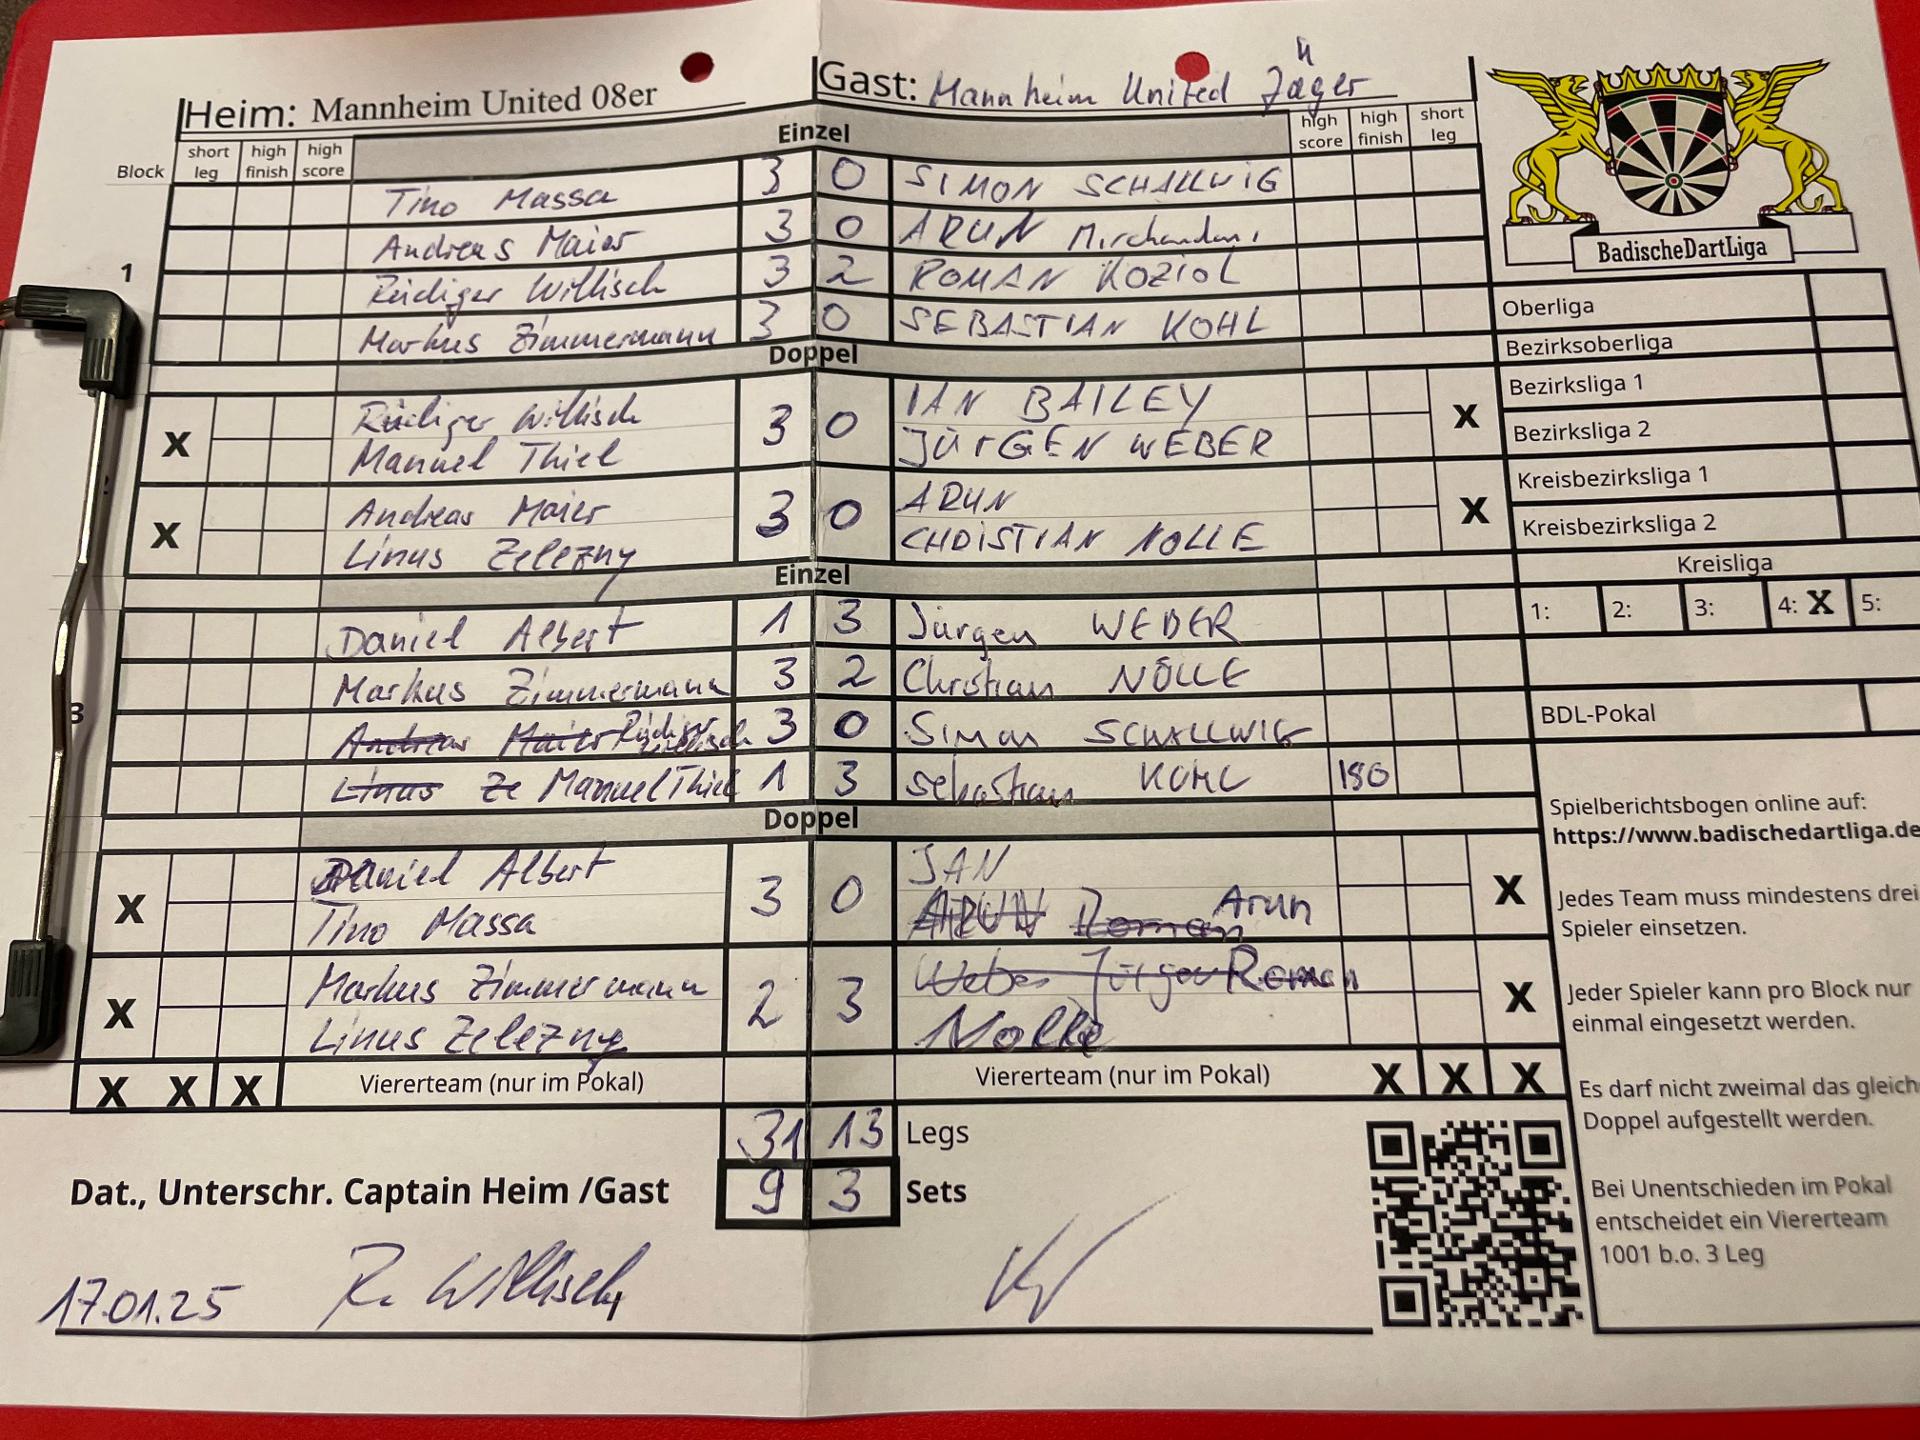 Heim: Mannheim United 08er
Gast: Mannheim United Jäger
Block short leg high finish high score Einzel high score high finish short leg
1
Tino Massa 3 0 SIMON SCHALLWIG
Andreas Maier 3 0 ARUN Mirchandani
Rüdiger Willisch 3 2 ROMAN KOZIOL
Markus Zimmermann 3 0 SEBASTIAN KOHL
Doppel
X Rüdiger Willisch 3 0 IAN BAILEY X
Manuel Thiel JÜRGEN WEBER
X Andreas Maier 3 0 ARUN X
Linus Zelezny CHDISTIAN NOLLE
Einzel
3
Daniel Albert 1 3 Jürgen WEBER
Markus Zimmermann 3 2 Christian NÖLLE
Andreas Maier Rüdiger Willisch 3 0 Simon SCHALLWIG
Linus Ze Manuel Thiel 1 3 Sebastian KOHL 180
Doppel
X Daniel Albert 3 0 IAN X
Tino Massa ARUN Roman Arun
X Markus Zimmermann 2 3 Weber Jürgen Roman X
Linus Zelezny Nolle
X X X Viererteam (nur im Pokal) Viererteam (nur im Pokal) X X X
31 13 Legs
Dat., Unterschr. Captain Heim /Gast 9 3 Sets
17.01.25 R. Willisch
BadischeDartLiga
Oberliga
Bezirksoberliga
Bezirksliga 1
Bezirksliga 2
Kreisbezirksliga 1
Kreisbezirksliga 2
Kreisliga
1: 2: 3: 4: X 5:
BDL-Pokal
Spielberichtsbogen online auf:
https://www.badischedartliga.de
Jedes Team muss mindestens drei
Spieler einsetzen.
Jeder Spieler kann pro Block nur
einmal eingesetzt werden.
Es darf nicht zweimal das gleich
Doppel aufgestellt werden.
Bei Unentschieden im Pokal
entscheidet ein Viererteam
1001 b.o. 3 Leg